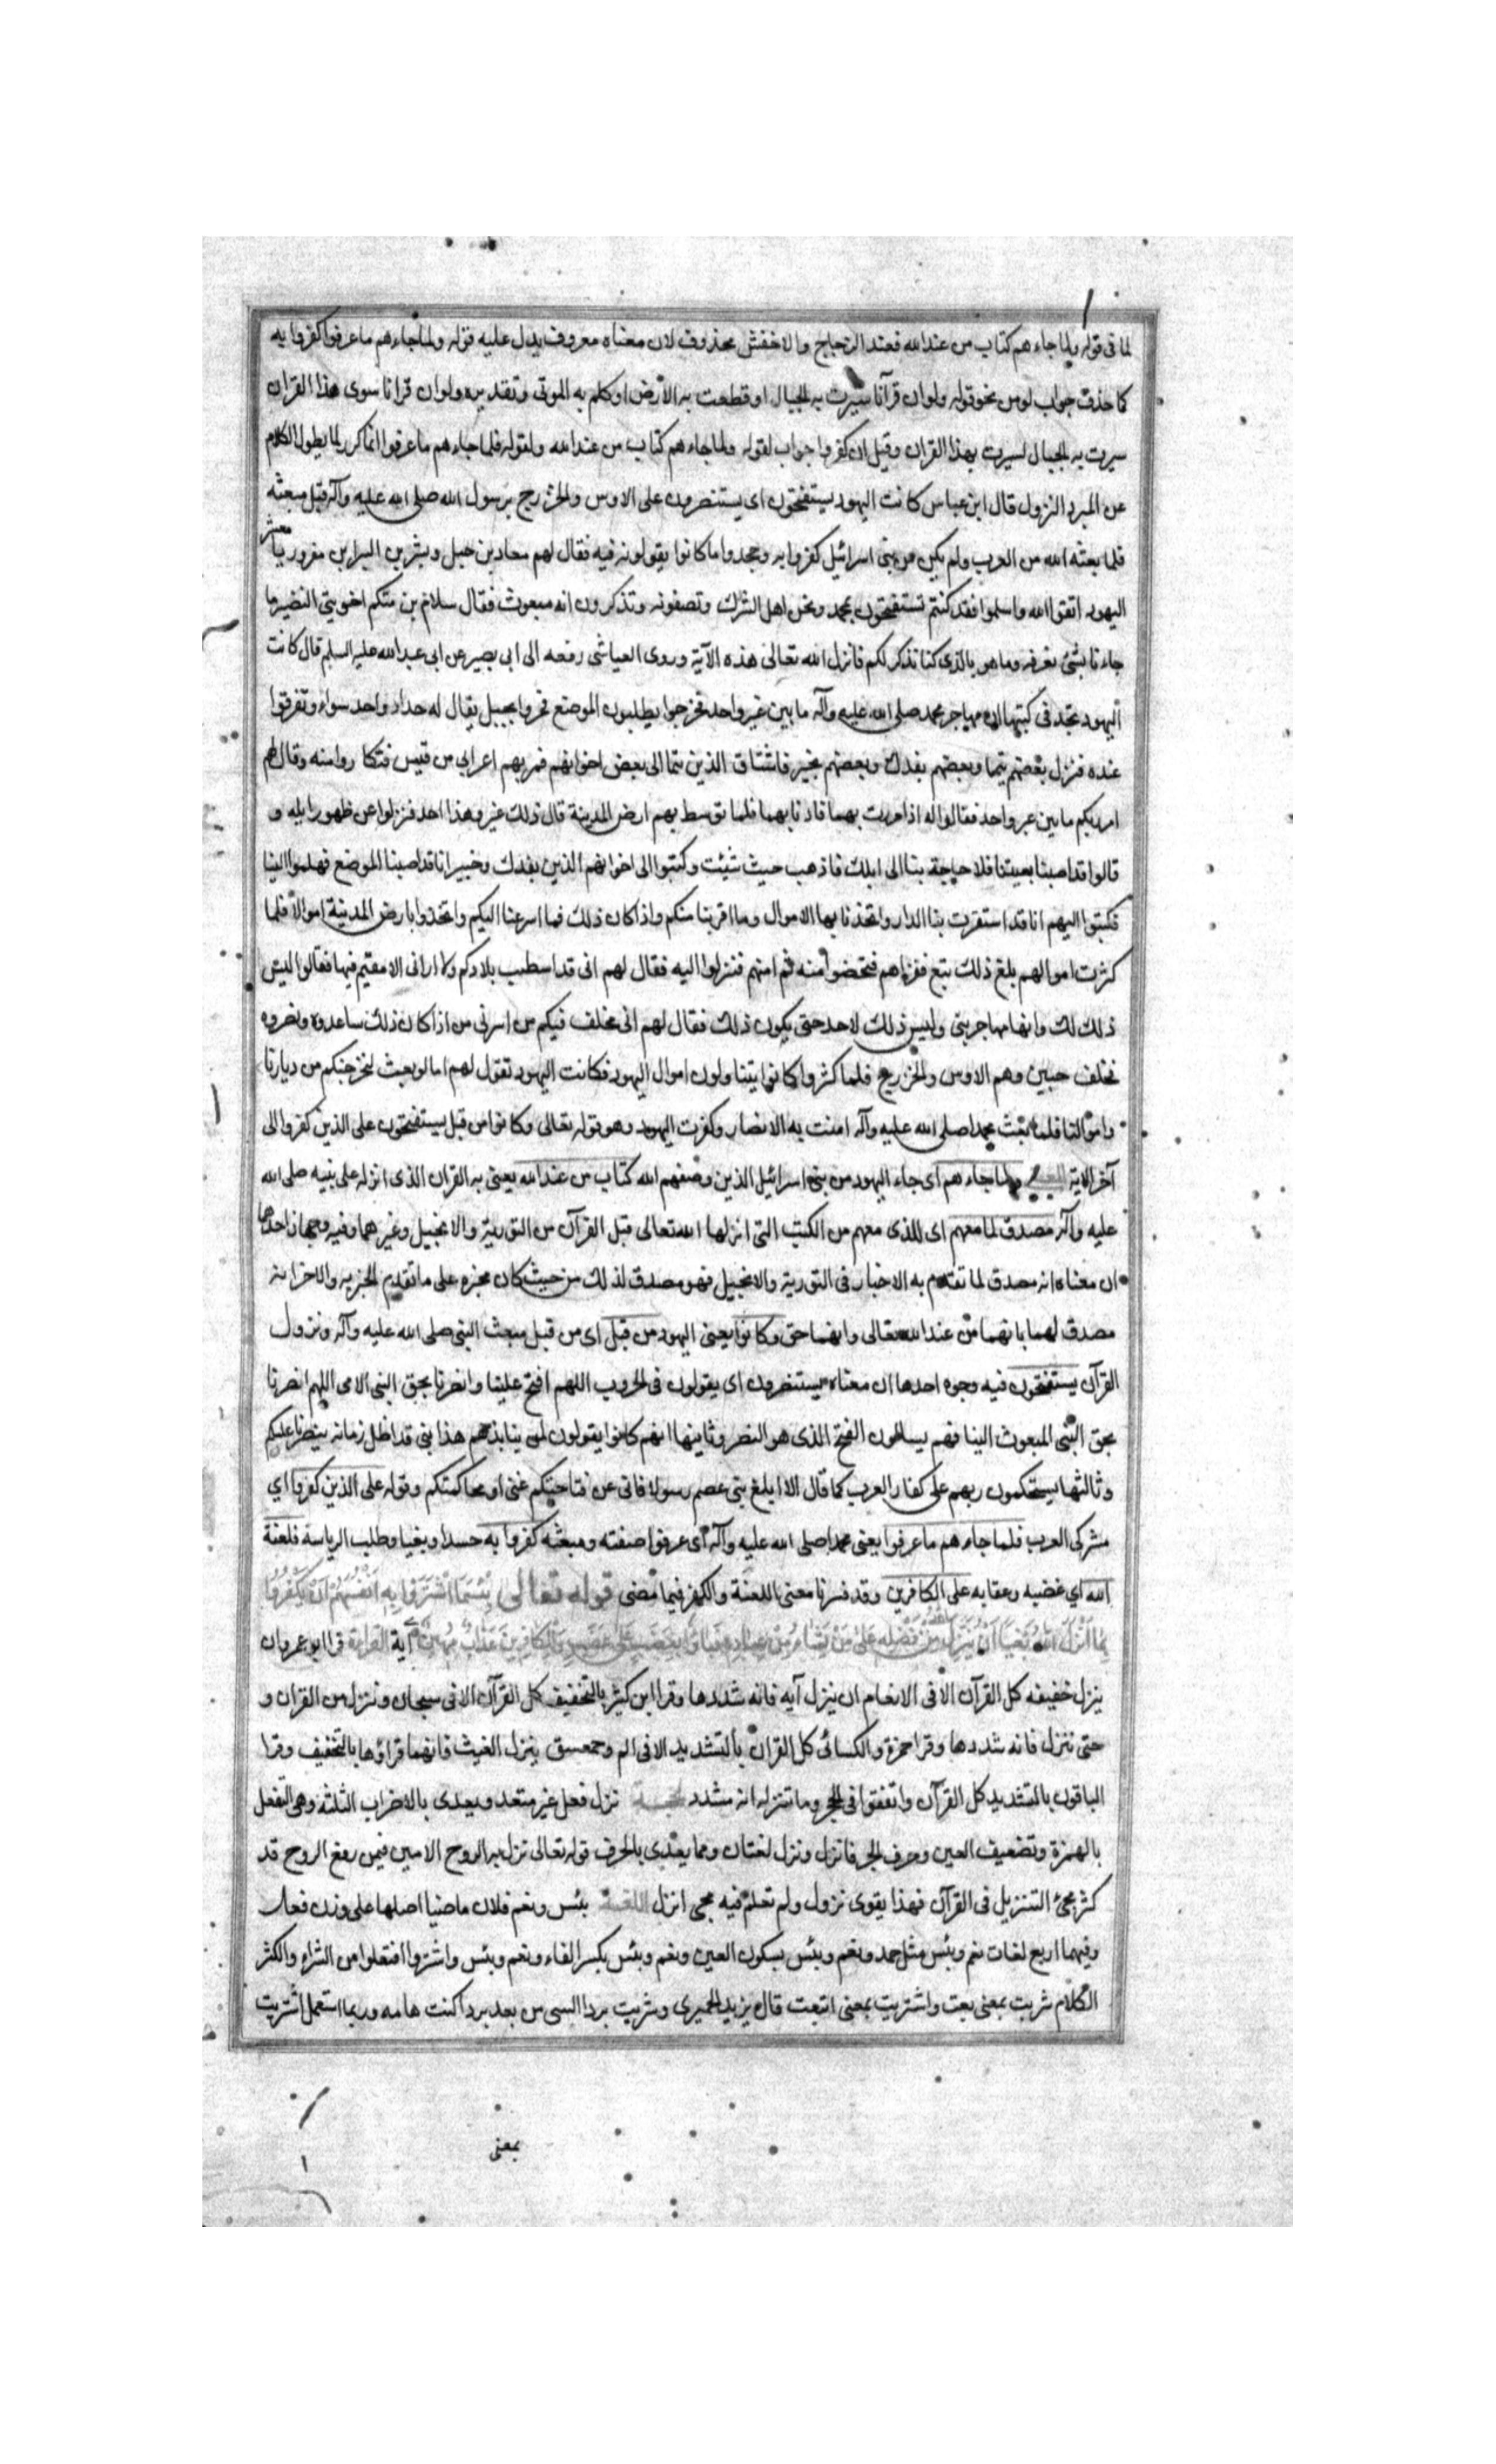 لما فى قوله ولما جاءهم كتاب من عندالله فعند الزجاج والاخفش محذوف لان معناه معروف يدل عليه قوله ولما جاءهم ماعرفوا كفروا به
كما حذف جواب لو من نحو قوله ولو ان قرآنا سيرت به الجبال او قطعت به الأرض او كلم به الموتى وتقديره ولو ان قرانا سوى هذا القران
سيرت به الجبال لسيرت بهذا القران وقيل ان كفروا جواب لقوله ولما جاءهم كتاب من عندالله ولقوله فلما جاءهم ماعرفوا انما كرر لما يطول الكلام
عن المبرد النزول قال ابن عباس كانت اليهود يستفتحون اى يستنصرون على الاوس والخزرج برسول الله صلى الله عليه وآله قبل مبعثه
فلما بعثه الله من العرب ولم يكن من بنى اسرائيل كفروا به وجحدوا ما كانوا يقولونه فيه فقال لهم معاد بن جبل وبشر بن البراء بن معرور يا معشر
اليهود اتقوا الله واسلموا فقد كنتم تستفتحون بمحمد ونحن اهل الشرك وتصفونه وتذكرون انه مبعوث فقال سلام بن مشكم اخو بنى النضير ما
جاءنا بشئ نعرفه وما هو بالذى كنا نذكر لكم فانزل الله تعالى هذه الآية وروى العياشى رفعه الى ابى بصير عن ابى عبدالله عليه السلم قال كانت
اليهود تجد فى كتبها ان مهاجر محمد صلى الله عليه وآله ما بين عير واحد فخرجوا يطلبون الموضع فمروا بجبل يقال له حداد واحد سواء وتفرقوا
عنده فنزل بعضهم بتيما وبعضهم بفدك وبعضهم بخيبر فاشتاق الذين بتما الى بعض اخوانهم فمر بهم اعرابى من قيس فتكاروا منه وقال لهم
امر بكم ما بين عير واحد فقالوا له اذا مررت بهما فاذنا بهما فلما توسط بهم ارض المدينة قال ذلك عير وهذا احد فنزلوا عن ظهور ابله و
قالوا قد اصبنا بغيتنا فلا حاجة بنا الى ابلك فاذهب حيث شئت وكتبوا الى اخوانهم الذين بفدك وخيبر انا قد اصبنا الموضع فهلموا الينا
فكتبوا اليهم انا قد استقرت بنا الدار واتخذنا بها الاموال وما اقربنا منكم واذا كان ذلك فما اسرعنا اليكم واتخذوا بارض المدينة اموالا فلما
كثرت اموالهم بلغ ذلك تبع فغزاهم فتحضوا منه ثم امنهم فنزلوا اليه فقال لهم انى قد اسطيب بلادكم ولا ارانى الا مقيم فيها فقالوا ليس
ذلك لك وانها مهاجر بنى وليس ذلك لاحد حتى يكون ذلك فقال لهم انى مخلف فيكم من اسرتى من اذا كان ذلك ساعدوه ونصروه
فخلف حيين وهم الاوس والخزرج فلما كثروا كانوا يتناولون اموال اليهود فكانت اليهود تقول لهم اما لو بعث لنخرجنكم من ديارنا
واموالنا فلما بعث محمدا صلى الله عليه وآله امنت به الانصار وكفرت اليهود وهو قوله تعالى وكانوا من قبل يستفتحون على الذين كفروا الى
آخر الاية المعنى ولما جاءهم اى جاء اليهود من بنى اسرائيل الذين وصفهم الله كتاب من عندالله يعنى به القران الذى انزله على نبيه صلى الله
عليه وآله مصدق لما معهم اى للذى معهم من الكتب التى انزلها الله تعالى قبل القرآن من التورية والانجيل وغيرهما وفيه وجهان احدهما
ان معناه انه مصدق لما تقدم به الاخبار فى التورية والانجيل فهو مصدق لذلك من حيث كان مخبره على ما تقدم الخبر به والاخر انه
مصدق لهما بانهما من عند الله تعالى وانهما حق وكانوا يعنى اليهود من قبل اى من قبل مبعث النبى صلى الله عليه وآله ونزول
القرآن يستفتحون فيه وجوه احدها ان معناه يستنصرون اى يقولون فى الحروب اللهم افتح علينا وانصرنا بحق النبى الامى اللهم انصرنا
بحق النبى المبعوث الينا فهم يسالون الفتح الذى هو النصر وثانيها انهم كانوا يقولون لمن ينابذهم هذا نبى قد اظل زمانه ينصرنا عليكم
وثالثها يستحكمون ربهم على كفار العرب كما قال الا ابلغ بنى عصم رسولا فانى عن فتاحتكم غنى اى محاكمتكم وقوله على الذين كفروا اى
مشركى العرب فلما جاءهم ماعرفوا يعنى محمدا صلى الله عليه وآله اى عرفوا صفته ومبعثه كفروا به حسدا وبغيا وطلب الرياسة فلعنة
الله اى غضبه وعقابه على الكافرين وقد فسرنا معنى اللعنة والكفر فيما مضى قوله تعالى بِئْسَمَا اشْتَرَوْا بِهِ اَنْفُسَهُمْ اَنْ يَكْفُرُوا
بِمَا اَنْزَلَ اللهُ بَغْيًا اَنْ يُنَزِّلَ اللهُ مِنْ فَضْلِهِ عَلَى مَنْ يَشَاءُ مِنْ عِبَادِهِ فَبَاؤُا بِغَضَبٍ عَلَى غَضَبٍ وَلِلْكَافِرِينَ عَذَابٌ مُهِينٌ آية القراءة قرا ابو عمرو ان
ينزل خفيفه كل القرآن الا فى الانعام ان ينزل آيه فانه شددها وقرا ابن كثير بالتخفيف كل القرآن الا فى سبحان وننزل من القران و
حتى تنزل فانه شددها وقرا حمزة والكسائى كل القران بالتشديد الا فى الم وحمعسق ينزل الغيث فانهما قراؤها بالتخفيف وقرا
الباقون بالتشديد كل القرآن واتفقوا فى الحجر وما ننزله انه مشدد الحجة نزل فعل غير متعد ويعدى بالاضراب الثلثه وهى النقل
بالهمزة وتضعيف العين وحرف الجر فانزل ونزل لغتان ومما يعدى بالحرف قوله تعالى نزل به الروح الامين فيمن رفع الروح قد
كثر مجئ التنزيل فى القرآن فهذا يقوى نزول ولم تعلم فيه مجى انزل اللغة بئس ونعم فلان ماضيا اصلها على وزن فعل
وفيهما اربع لغات نعم وبئس مثل حمد ونعم وبئس بسكون العين ونعم وبئس بكسر الفاء ونعم وبئس واشتروا افتعلوا من الشراء واكثر
الكلام شريت بمعنى بعت واشتريت بمعنى ابتعت قال يزيد الحميرى وشريت بردا ليتنى من بعد برد كنت هامه وربما استعمل اشتريت
بمعنى